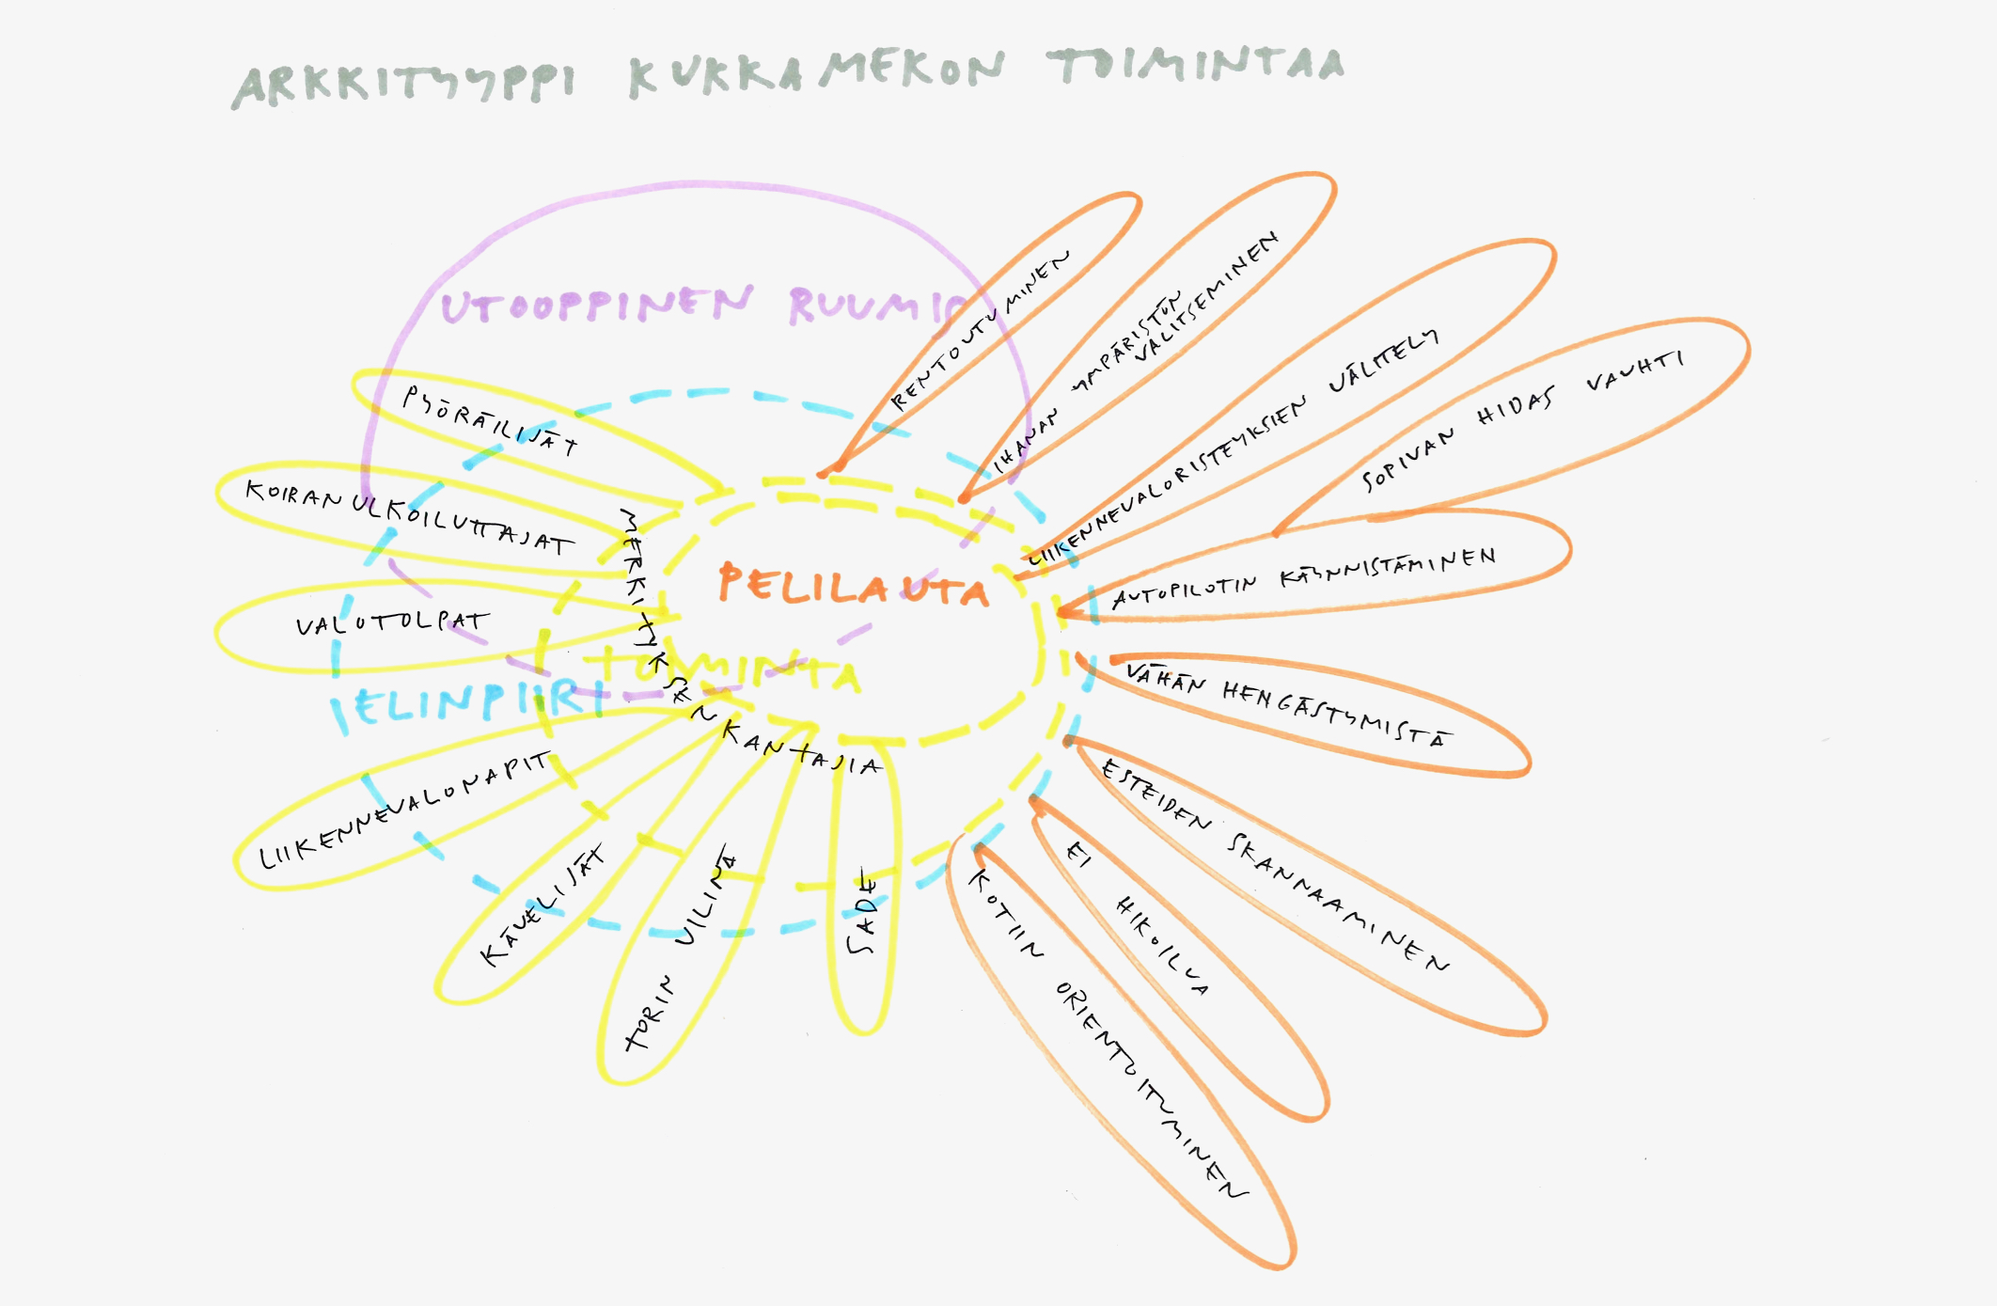 ARKKITYYPPI KUKKAMEKON TOIMINTAA
UTOOPPINEN RUUMIO
RENTOUTUMINEN
IHANAN YMPÄRISTÖN
VALITSEMINEN
LIIKENNEVALORISTEYKSIEN VÄLTTELY
SOPIVAN HIDAS VAUHTI
AUTOPILOTIN KÄYNNISTÄMINEN
VÄHÄN HENGÄSTYMISTÄ
ESTEIDEN SKANNAAMINEN
EI HIKOILUA
KOTIIN ORIENTOITUMINEN
PYÖRÄILIJÄT
KOIRANULKOILUTTAJAT
VALOTOLPAT
LIIKENNEVALONAPIT
KÄVELIJÄT
TORIN VILINÄ
SADE
MERKITYKSEN KANTAJIA
PELILAUTA
TOIMINTA
IELINPIIRI